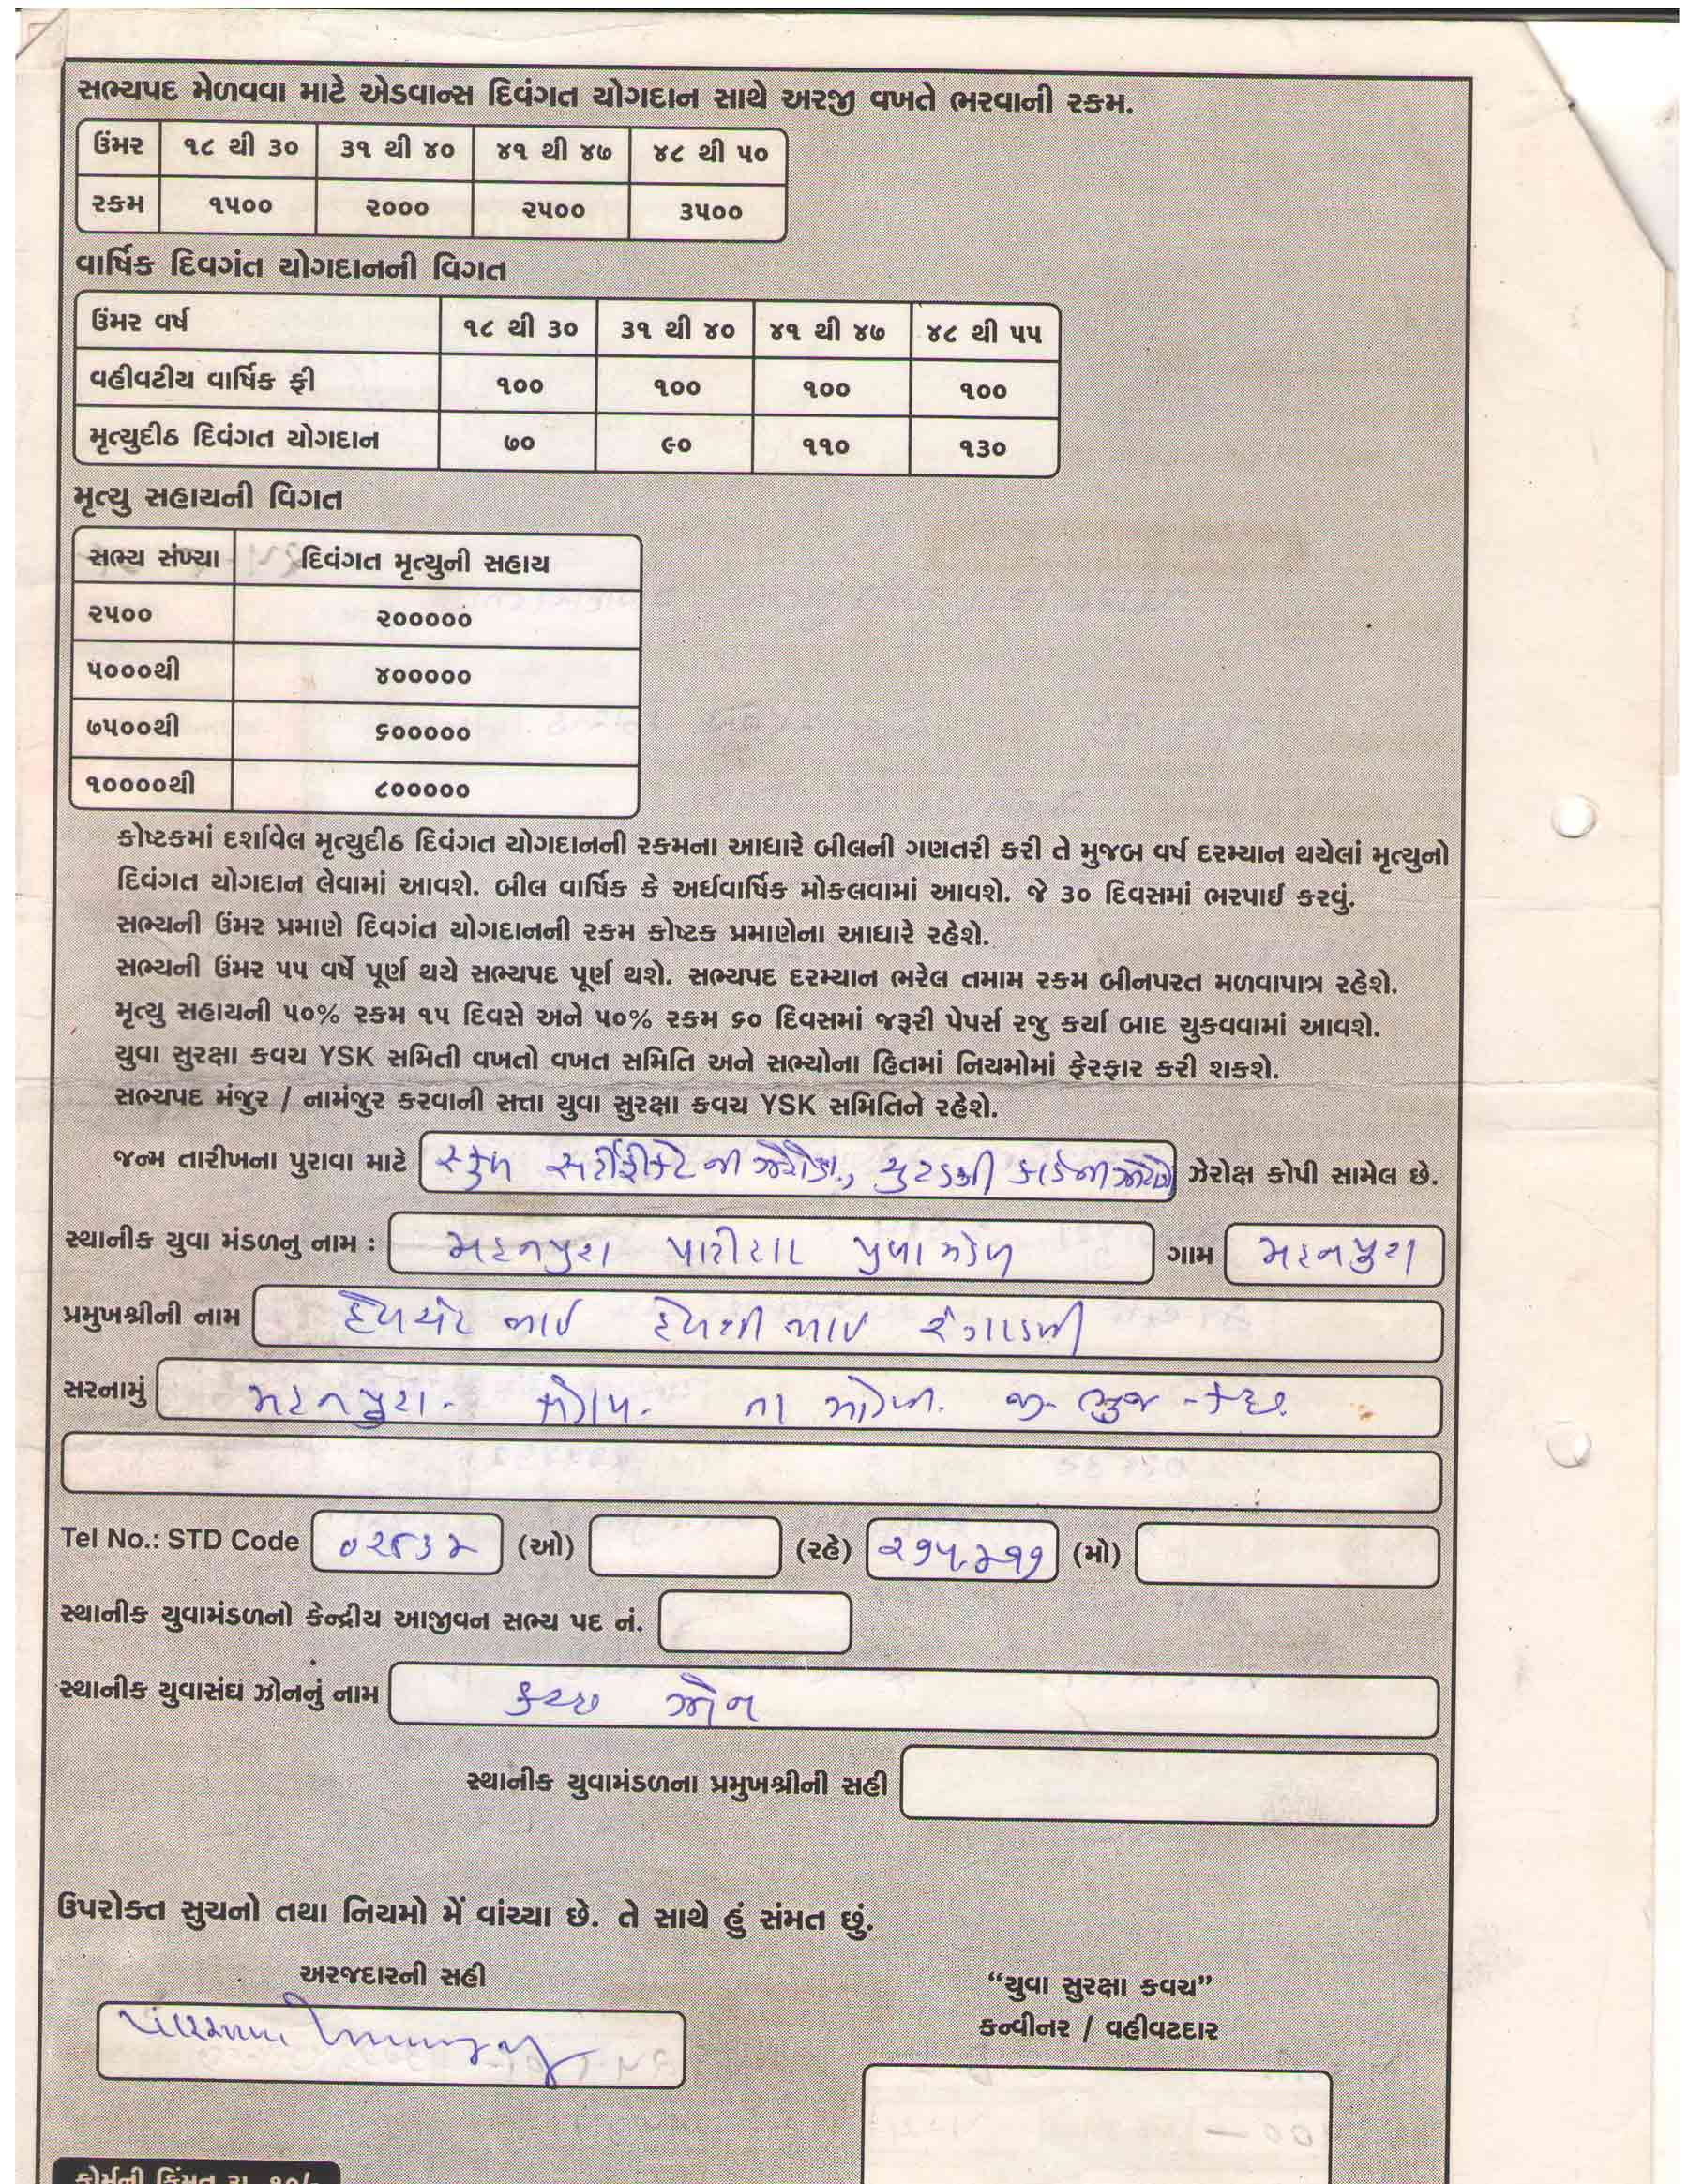 સભ્યપદ મેળવવા માટે એડવાન્સ દિવંગત યોગદાન સાથે અરજી વખતે ભરવાની રકમ.
ઉંમર ૧૮ થી ૩૦ ૩૧ થી ૪૦ ૪૧ થી ૪૭ ૪૮ થી ૫૦
રકમ ૧૫૦૦ ૨૦૦૦ ૨૫૦૦ ૩૫૦૦
વાર્ષિક દિવગંત યોગદાનની વિગત
ઉંમર વર્ષ ૧૮ થી ૩૦ ૩૧ થી ૪૦ ૪૧ થી ૪૭ ૪૮ થી ૫૫
વહીવટીય વાર્ષિક ફી ૧૦૦ ૧૦૦ ૧૦૦ ૧૦૦
મૃત્યુદીઠ દિવંગત યોગદાન ૭૦ ૯૦ ૧૧૦ ૧૩૦
મૃત્યુ સહાયની વિગત
સભ્ય સંખ્યા દિવંગત મૃત્યુની સહાય
૨૫૦૦ ૨૦૦૦૦૦
૫૦૦૦થી ૪૦૦૦૦૦
૭૫૦૦થી ૬૦૦૦૦૦
૧૦૦૦૦થી ૮૦૦૦૦૦
કોષ્ટકમાં દર્શાવેલ મૃત્યુદીઠ દિવંગત યોગદાનની રકમના આધારે બીલની ગણતરી કરી તે મુજબ વર્ષ દરમ્યાન થયેલાં મૃત્યુનો
દિવંગત યોગદાન લેવામાં આવશે. બીલ વાર્ષિક કે અર્ધવાર્ષિક મોકલવામાં આવશે. જે ૩૦ દિવસમાં ભરપાઈ કરવું.
સભ્યની ઉંમર પ્રમાણે દિવગંત યોગદાનની રકમ કોષ્ટક પ્રમાણેના આધારે રહેશે.
સભ્યની ઉંમર ૫૫ વર્ષે પૂર્ણ થયે સભ્યપદ પૂર્ણ થશે. સભ્યપદ દરમ્યાન ભરેલ તમામ રકમ બીનપરત મળવાપાત્ર રહેશે.
મૃત્યુ સહાયની ૫૦% રકમ ૧૫ દિવસે અને ૫૦% રકમ ૬૦ દિવસમાં જરૂરી પેપર્સ રજુ કર્યા બાદ ચુકવવામાં આવશે.
યુવા સુરક્ષા કવચ YSK સમિતી વખતો વખત સમિતિ અને સભ્યોના હિતમાં નિયમોમાં ફેરફાર કરી શકશે.
સભ્યપદ મંજુર / નામંજુર કરવાની સત્તા યુવા સુરક્ષા કવચ YSK સમિતિને રહેશે.
જન્મ તારીખના પુરાવા માટે સ્કુલ સર્ટીફીકેટ ની ઝેરોક્ષ, ચુટણી કાર્ડની ઝેરોક્ષ ઝેરોક્ષ કોપી સામેલ છે.
સ્થાનીક યુવા મંડળનુ નામ : મદનપુરા પાટીદાર યુવા મંડળ ગામ મદનપુરા
પ્રમુખશ્રીની નામ ભાઈ ભાઈ
સરનામું મદનપુરા. તા જી- ભુજ - કચ્છ.
Tel No.: STD Code ૦૨૮૩૨ (ઓ) (રહે) (મો)
સ્થાનીક યુવામંડળનો કેન્દ્રીય આજીવન સભ્ય પદ નં.
સ્થાનીક યુવાસંઘ ઝોનનું નામ કચ્છ ઝોન
સ્થાનીક યુવામંડળના પ્રમુખશ્રીની સહી
ઉપરોક્ત સુચનો તથા નિયમો મેં વાંચ્યા છે. તે સાથે હું સંમત છું.
અરજદારની સહી
“યુવા સુરક્ષા કવચ”
કન્વીનર / વહીવટદાર
ફોર્મની કિંમત રૂા. ૧૦/-